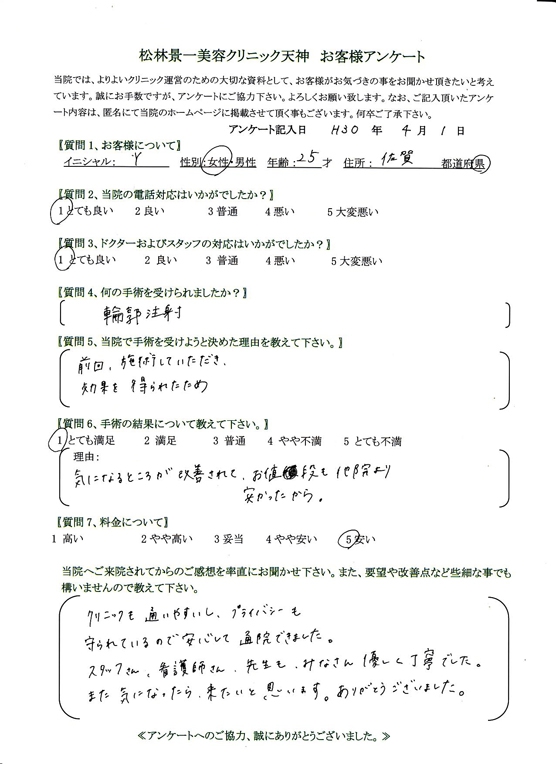 松林景一美容クリニック天神　お客様アンケート
当院では、よりよいクリニック運営のための大切な資料として、お客様がお気づきの事をお聞かせ頂きたいと考え
ています。誠にお手数ですが、アンケートにご協力下さい。よろしくお願い致します。なお、ご記入頂いたアンケ
ート内容は、匿名にて当院のホームページに掲載させて頂く事もございます。何卒ご了承下さい。
アンケート記入日　H30 年　4 月　1 日
〖質問1、お客様について〗
イニシャル：　Y　性別：女性・男性　年齢：25 才　住所：　佐賀　都道府県
〖質問2、当院の電話対応はいかがでしたか？〗
1 とても良い　2 良い　3 普通　4 悪い　5 大変悪い
〖質問3、ドクターおよびスタッフの対応はいかがでしたか？〗
1 とても良い　2 良い　3 普通　4 悪い　5 大変悪い
〖質問4、何の手術を受けられましたか？〗
輪郭注射
〖質問5、当院で手術を受けようと決めた理由を教えて下さい。〗
前回、施術していただき、
効果を得られたため
〖質問6、手術の結果について教えて下さい。〗
1 とても満足　2 満足　3 普通　4 やや不満　5 とても不満
理由：
気になるところが改善されて、お値段も他院より
安かったから。
〖質問7、料金について〗
1 高い　2 やや高い　3 妥当　4 やや安い　5 安い
当院へご来院されてからのご感想を率直にお聞かせ下さい。また、要望や改善点など些細な事でも
構いませんので教えて下さい。
クリニックも通いやすいし、プライバシーも
守られているので安心して通院できました。
スタッフさん、看護師さん、先生も、みなさん優しく丁寧でした。
また気になったら、来たいと思います。ありがとうございました。
≪アンケートへのご協力、誠にありがとうございました。≫